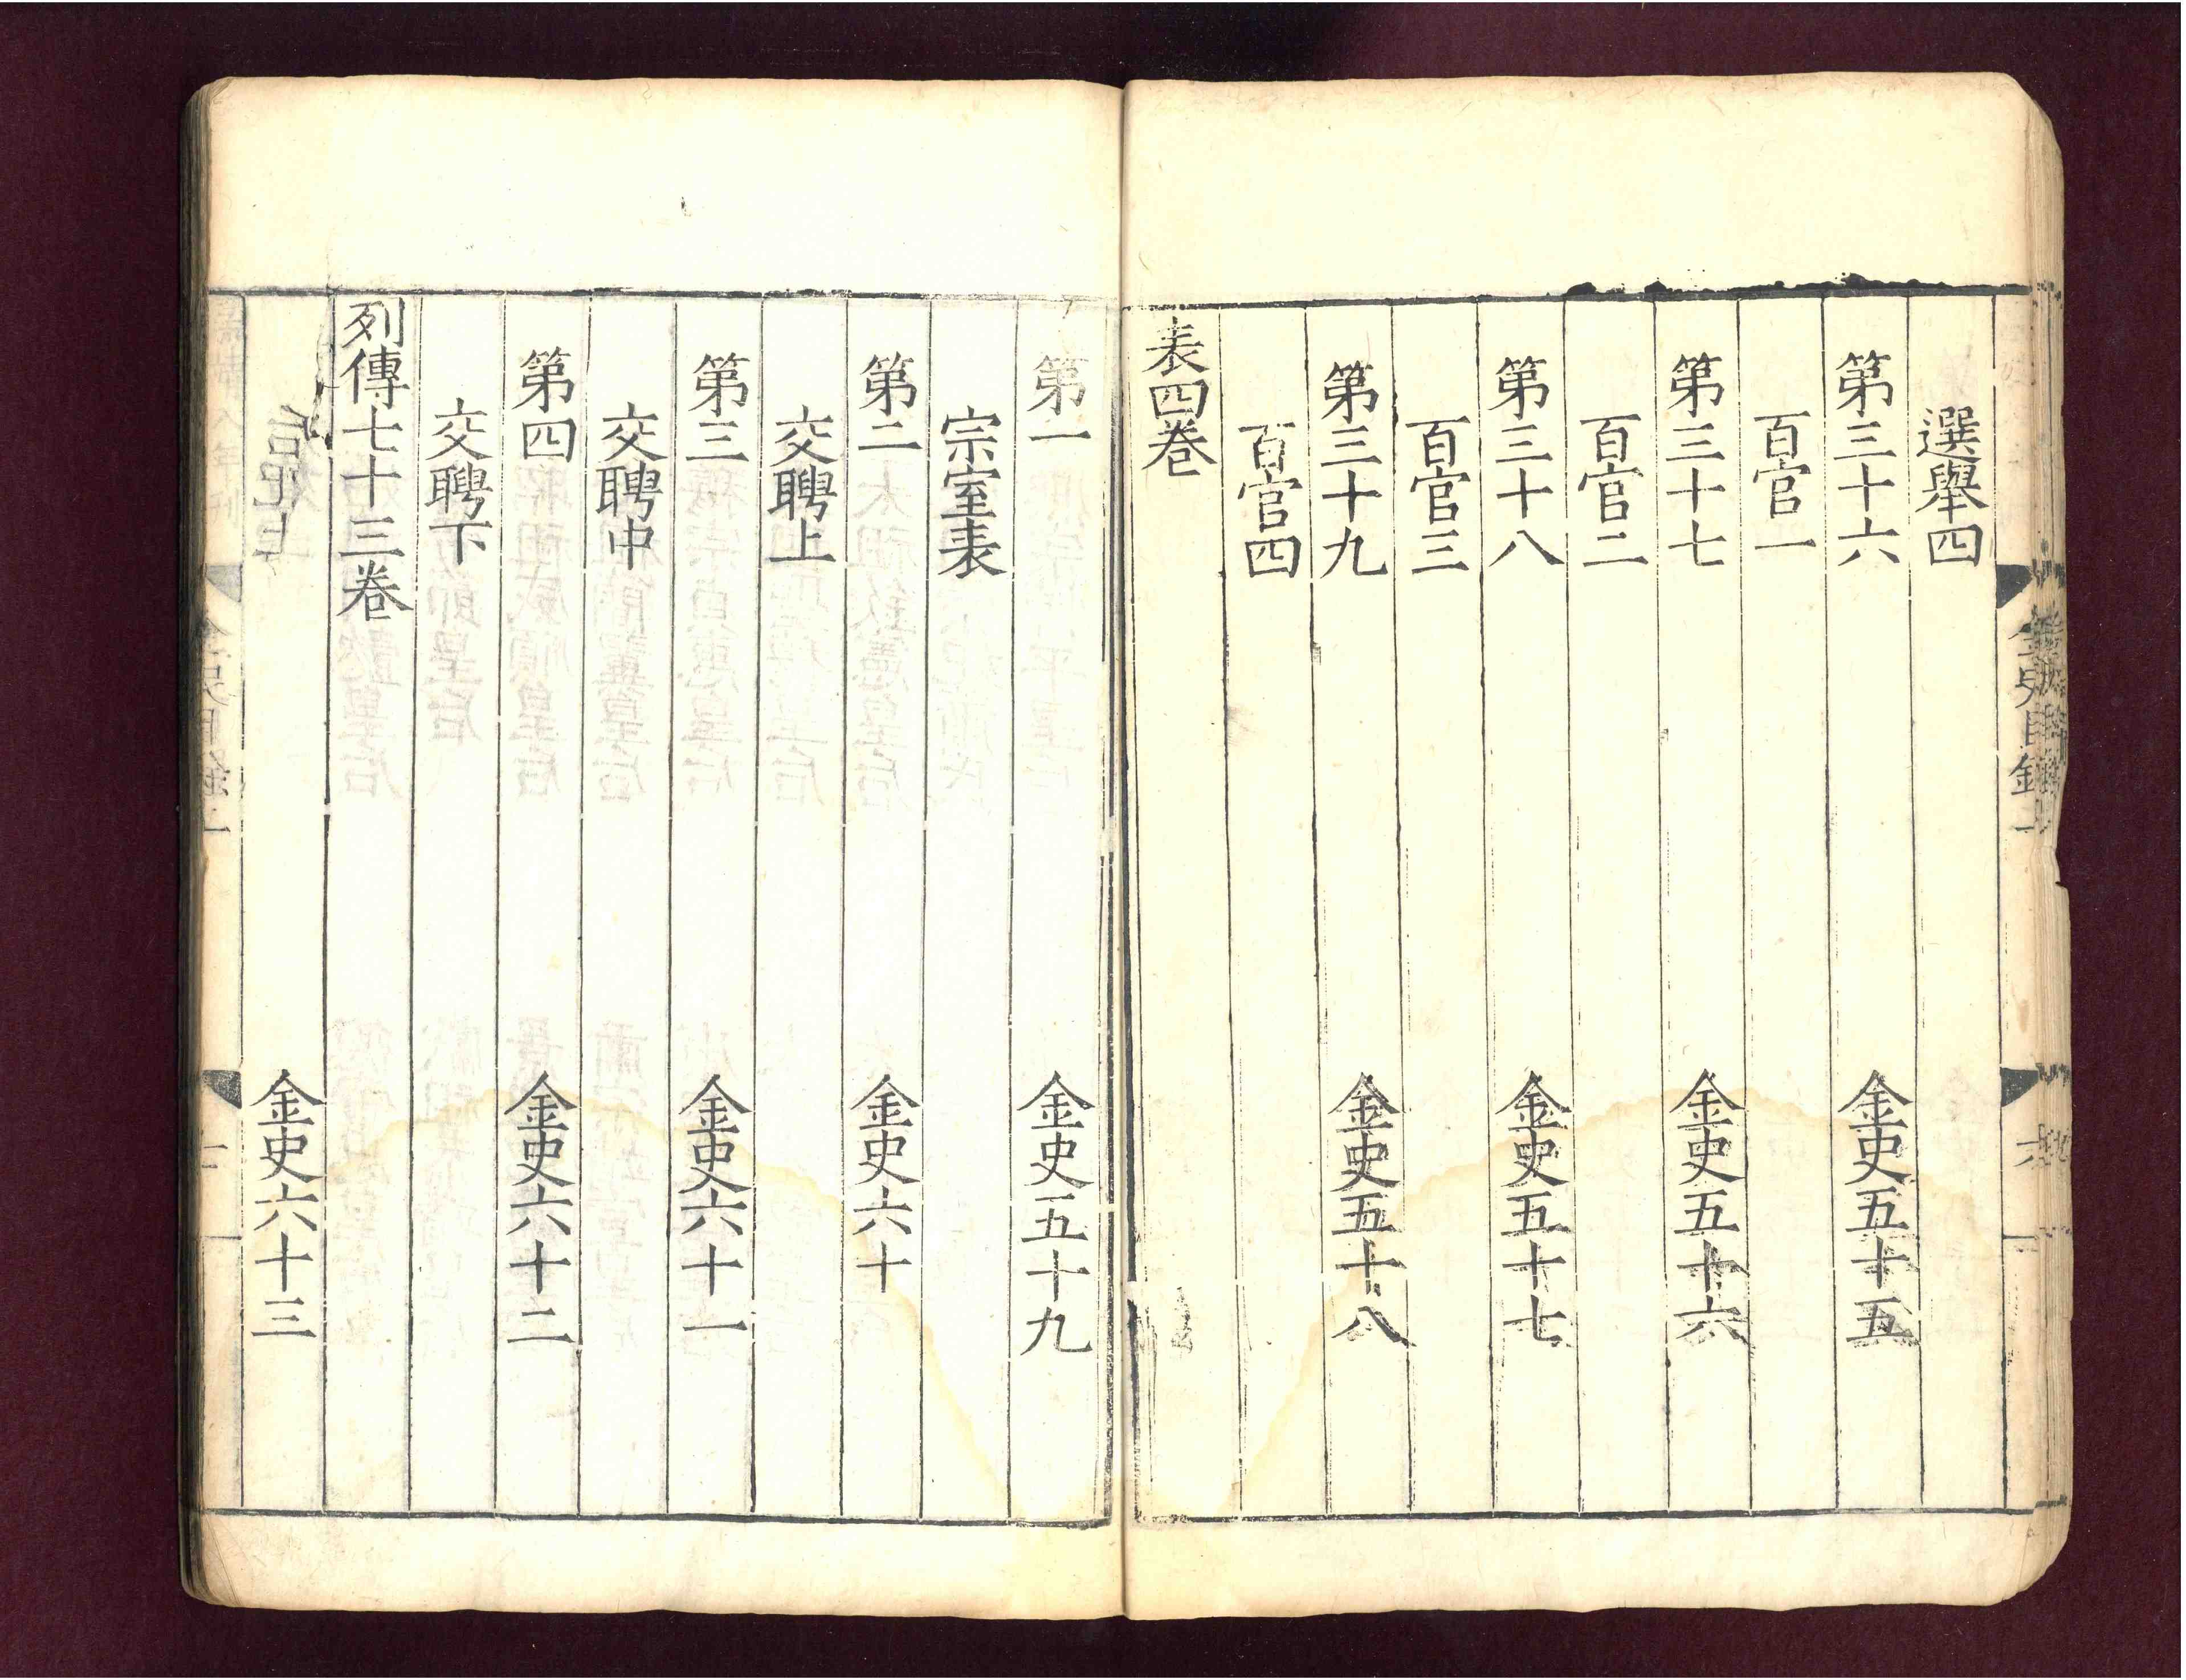 選舉四
第三十六 金史五十五
百官一
第三十七 金史五十六
百官二
第三十八 金史五十七
百官三
第三十九 金史五十八
百官四
表四卷
第一 金史五十九
宗室表
第二 金史六十
交聘上
第三 金史六十一
交聘中
第四 金史六十二
交聘下
列傳七十三卷
金史六十三